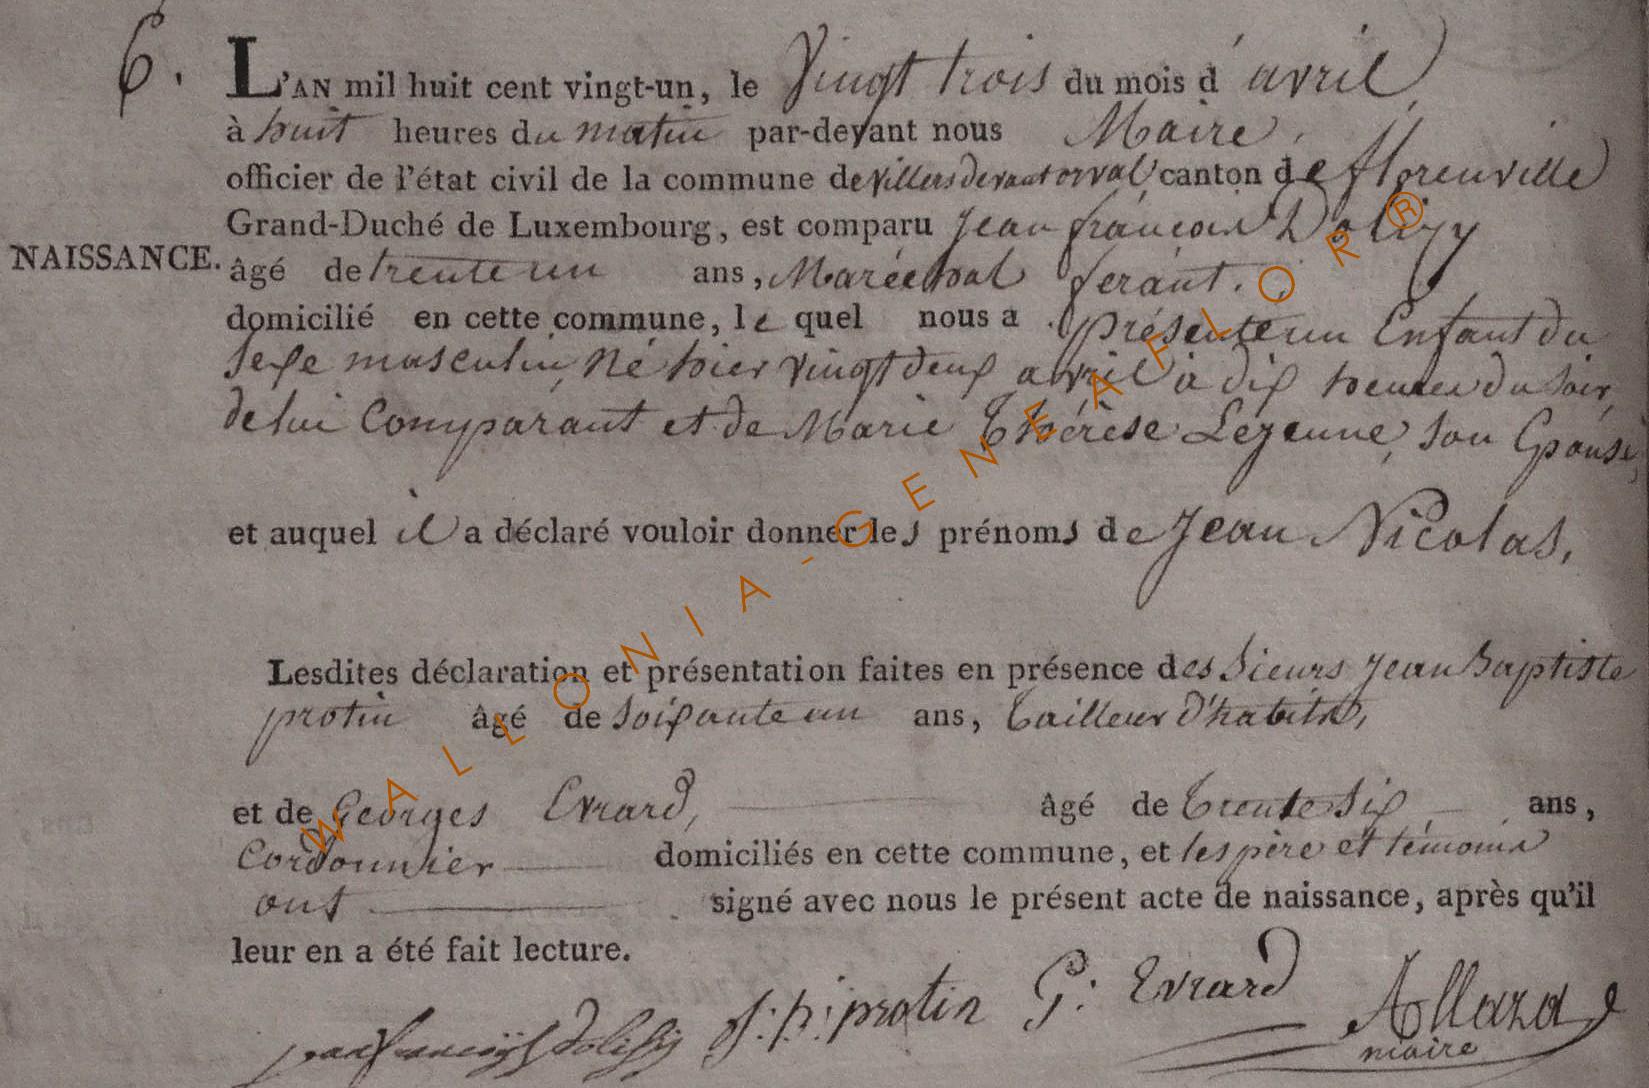 6.
L'AN mil huit cent vingt-un, le Vingt trois du mois d'avril,
à huit heures du matin par-devant nous Maire,
officier de l'état civil de la commune de villers devant orval canton de florenville
Grand-Duché de Luxembourg, est comparu Jean françois Dolizy
NAISSANCE.
âgé de trente un ans, Maréchal ferant.
domicilié en cette commune, le quel nous a présenté un Enfant du
sexe masculin, Né hier vingt deux avril à dix heures du soir,
de lui Comparant et de Marie Thérèse Lejeune, son Epouse,
et auquel il a déclaré vouloir donner les prénoms de Jean Nicolas,
Lesdites déclaration et présentation faites en présence des Sieurs Jean Baptiste
protin âgé de soixante un ans, tailleur d'habits,
et de Georges Evrard, âgé de trente six ans,
Cordonnier domiciliés en cette commune, et les père et témoins
ont signé avec nous le présent acte de naissance, après qu'il
leur en a été fait lecture.
jean francois dolisy J: B: protin G: Evrard Allard
maire
WALLONIA-GENEAFLOR®